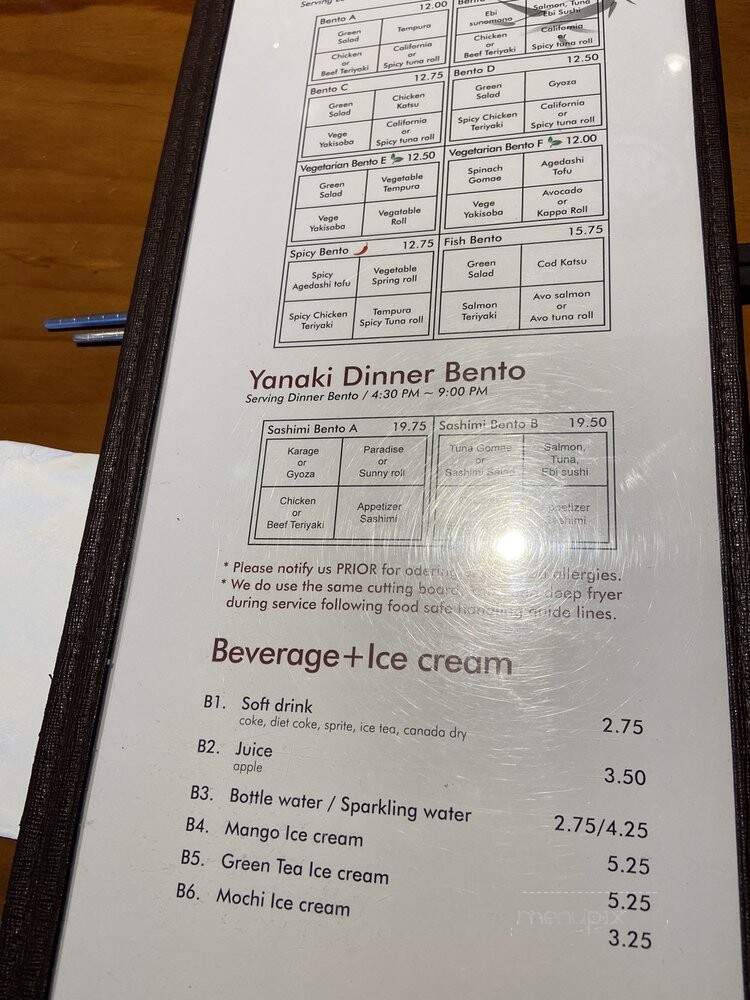 Serving
Bento A 12.00
Green
Salad
Tempura
Chicken
or
Beef Teriyaki
California
or
Spicy tuna roll
Ebi
sunomono
Salmon, Tuna
Ebi Sushi
Chicken
or
Beef Teriyaki
California
or
Spicy tuna roll
Bento C 12.75
Green
Salad
Chicken
Katsu
Vege
Yakisoba
California
or
Spicy tuna roll
Bento D 12.50
Green
Salad
Gyoza
Spicy Chicken
Teriyaki
California
or
Spicy tuna roll
Vegetarian Bento E 12.50
Green
Salad
Vegetable
Tempura
Vege
Yakisoba
Vegatable
Roll
Vegetarian Bento F 12.00
Spinach
Gomae
Agedashi
Tofu
Vege
Yakisoba
Avocado
or
Kappa Roll
Spicy Bento 12.75
Spicy
Agedashi tofu
Vegetable
Spring roll
Spicy Chicken
Teriyaki
Tempura
Spicy Tuna roll
Fish Bento 15.75
Green
Salad
Cod Katsu
Salmon
Teriyaki
Avo salmon
or
Avo tuna roll
Yanaki Dinner Bento
Serving Dinner Bento / 4:30 PM ~ 9:00 PM
Sashimi Bento A 19.75
Karage
or
Gyoza
Paradise
or
Sunny roll
Chicken
or
Beef Teriyaki
Appetizer
Sashimi
Sashimi Bento B 19.50
Tuna Gomae
or
Sashimi Salad
Salmon,
Tuna,
Ebi sushi
Appetizer
Sashimi
* Please notify us PRIOR for odering allergies.
* We do use the same cutting board deep fryer
during service following food safe handling guide lines.
Beverage+Ice cream
B1. Soft drink 2.75
coke, diet coke, sprite, ice tea, canada dry
B2. Juice 3.50
apple
B3. Bottle water / Sparkling water 2.75/4.25
B4. Mango Ice cream 5.25
B5. Green Tea Ice cream 5.25
B6. Mochi Ice cream 3.25
menupix